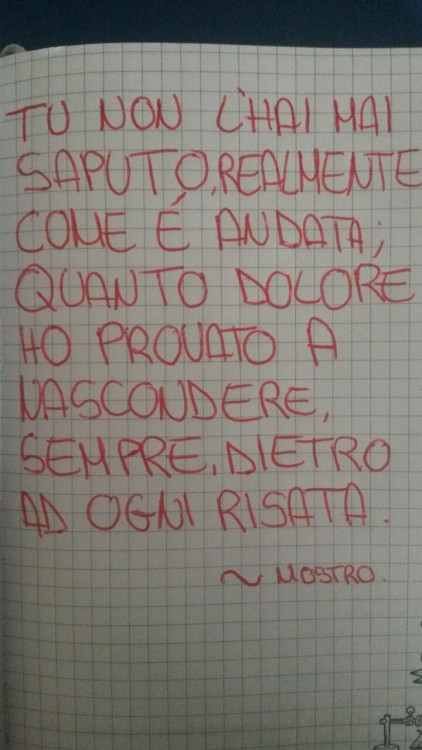 TU NON L'HAI MAI
SAPUTO, REALMENTE
COME É ANDATA;
QUANTO DOLORE
HO PROVATO A
NASCONDERE,
SEMPRE, DIETRO
AD OGNI RISATA.
~ MOSTRO.